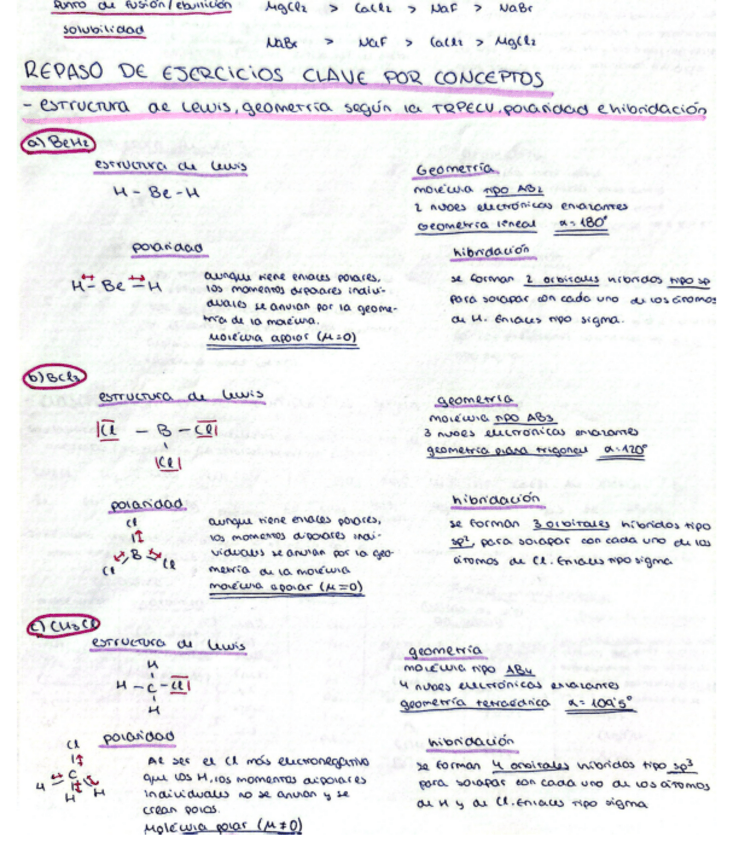 Punto de fusión/ebullición MgCl2 > CaCl2 > NaF > NaBr
solubilidad NaBr > NaF > CaCl2 > MgCl2
REPASO DE EJERCICIOS CLAVE POR CONCEPTOS
- estructura de Lewis, geometría según la TRPECV, polaridad e hibridación
a) BeH2
estructura de Lewis
H - Be - H
Geometría
molécula tipo AB2
2 nubes electrónicas enlazantes
Geometría lineal α=180°
polaridad
H - Be - H
aunque tiene enlaces polares,
los momentos dipolares indivi-
duales se anulan por la geome-
tría de la molécula.
Molécula apolar (μ=0)
hibridación
se forman 2 orbitales híbridos tipo sp
para solapar con cada uno de los átomos
de H. Enlaces tipo sigma.
b) BCl3
estructura de Lewis
Cl - B - Cl
Cl
geometría
molécula tipo AB3
3 nubes electrónicas enlazantes
geometría plana trigonal α=120°
polaridad
Cl
B
Cl Cl
aunque tiene enlaces polares,
los momentos dipolares indi-
viduales se anulan por la geo-
metría de la molécula
molécula apolar (μ=0)
hibridación
se forman 3 orbitales híbridos tipo
sp², para solapar con cada uno de los
átomos de Cl. Enlaces tipo sigma
c) CH3Cl
estructura de Lewis
H
H - C - Cl
H
geometría
molécula tipo AB4
4 nubes electrónicas enlazantes
geometría tetraédrica α= 109'5°
polaridad
Cl
C
H H H
Al ser el Cl más electronegativo
que los H, los momentos dipolares
individuales no se anulan y se
crean polos.
Molécula polar (μ≠0)
hibridación
se forman 4 orbitales híbridos tipo sp³
para solapar con cada uno de los átomos
de H y de Cl. Enlaces tipo sigma